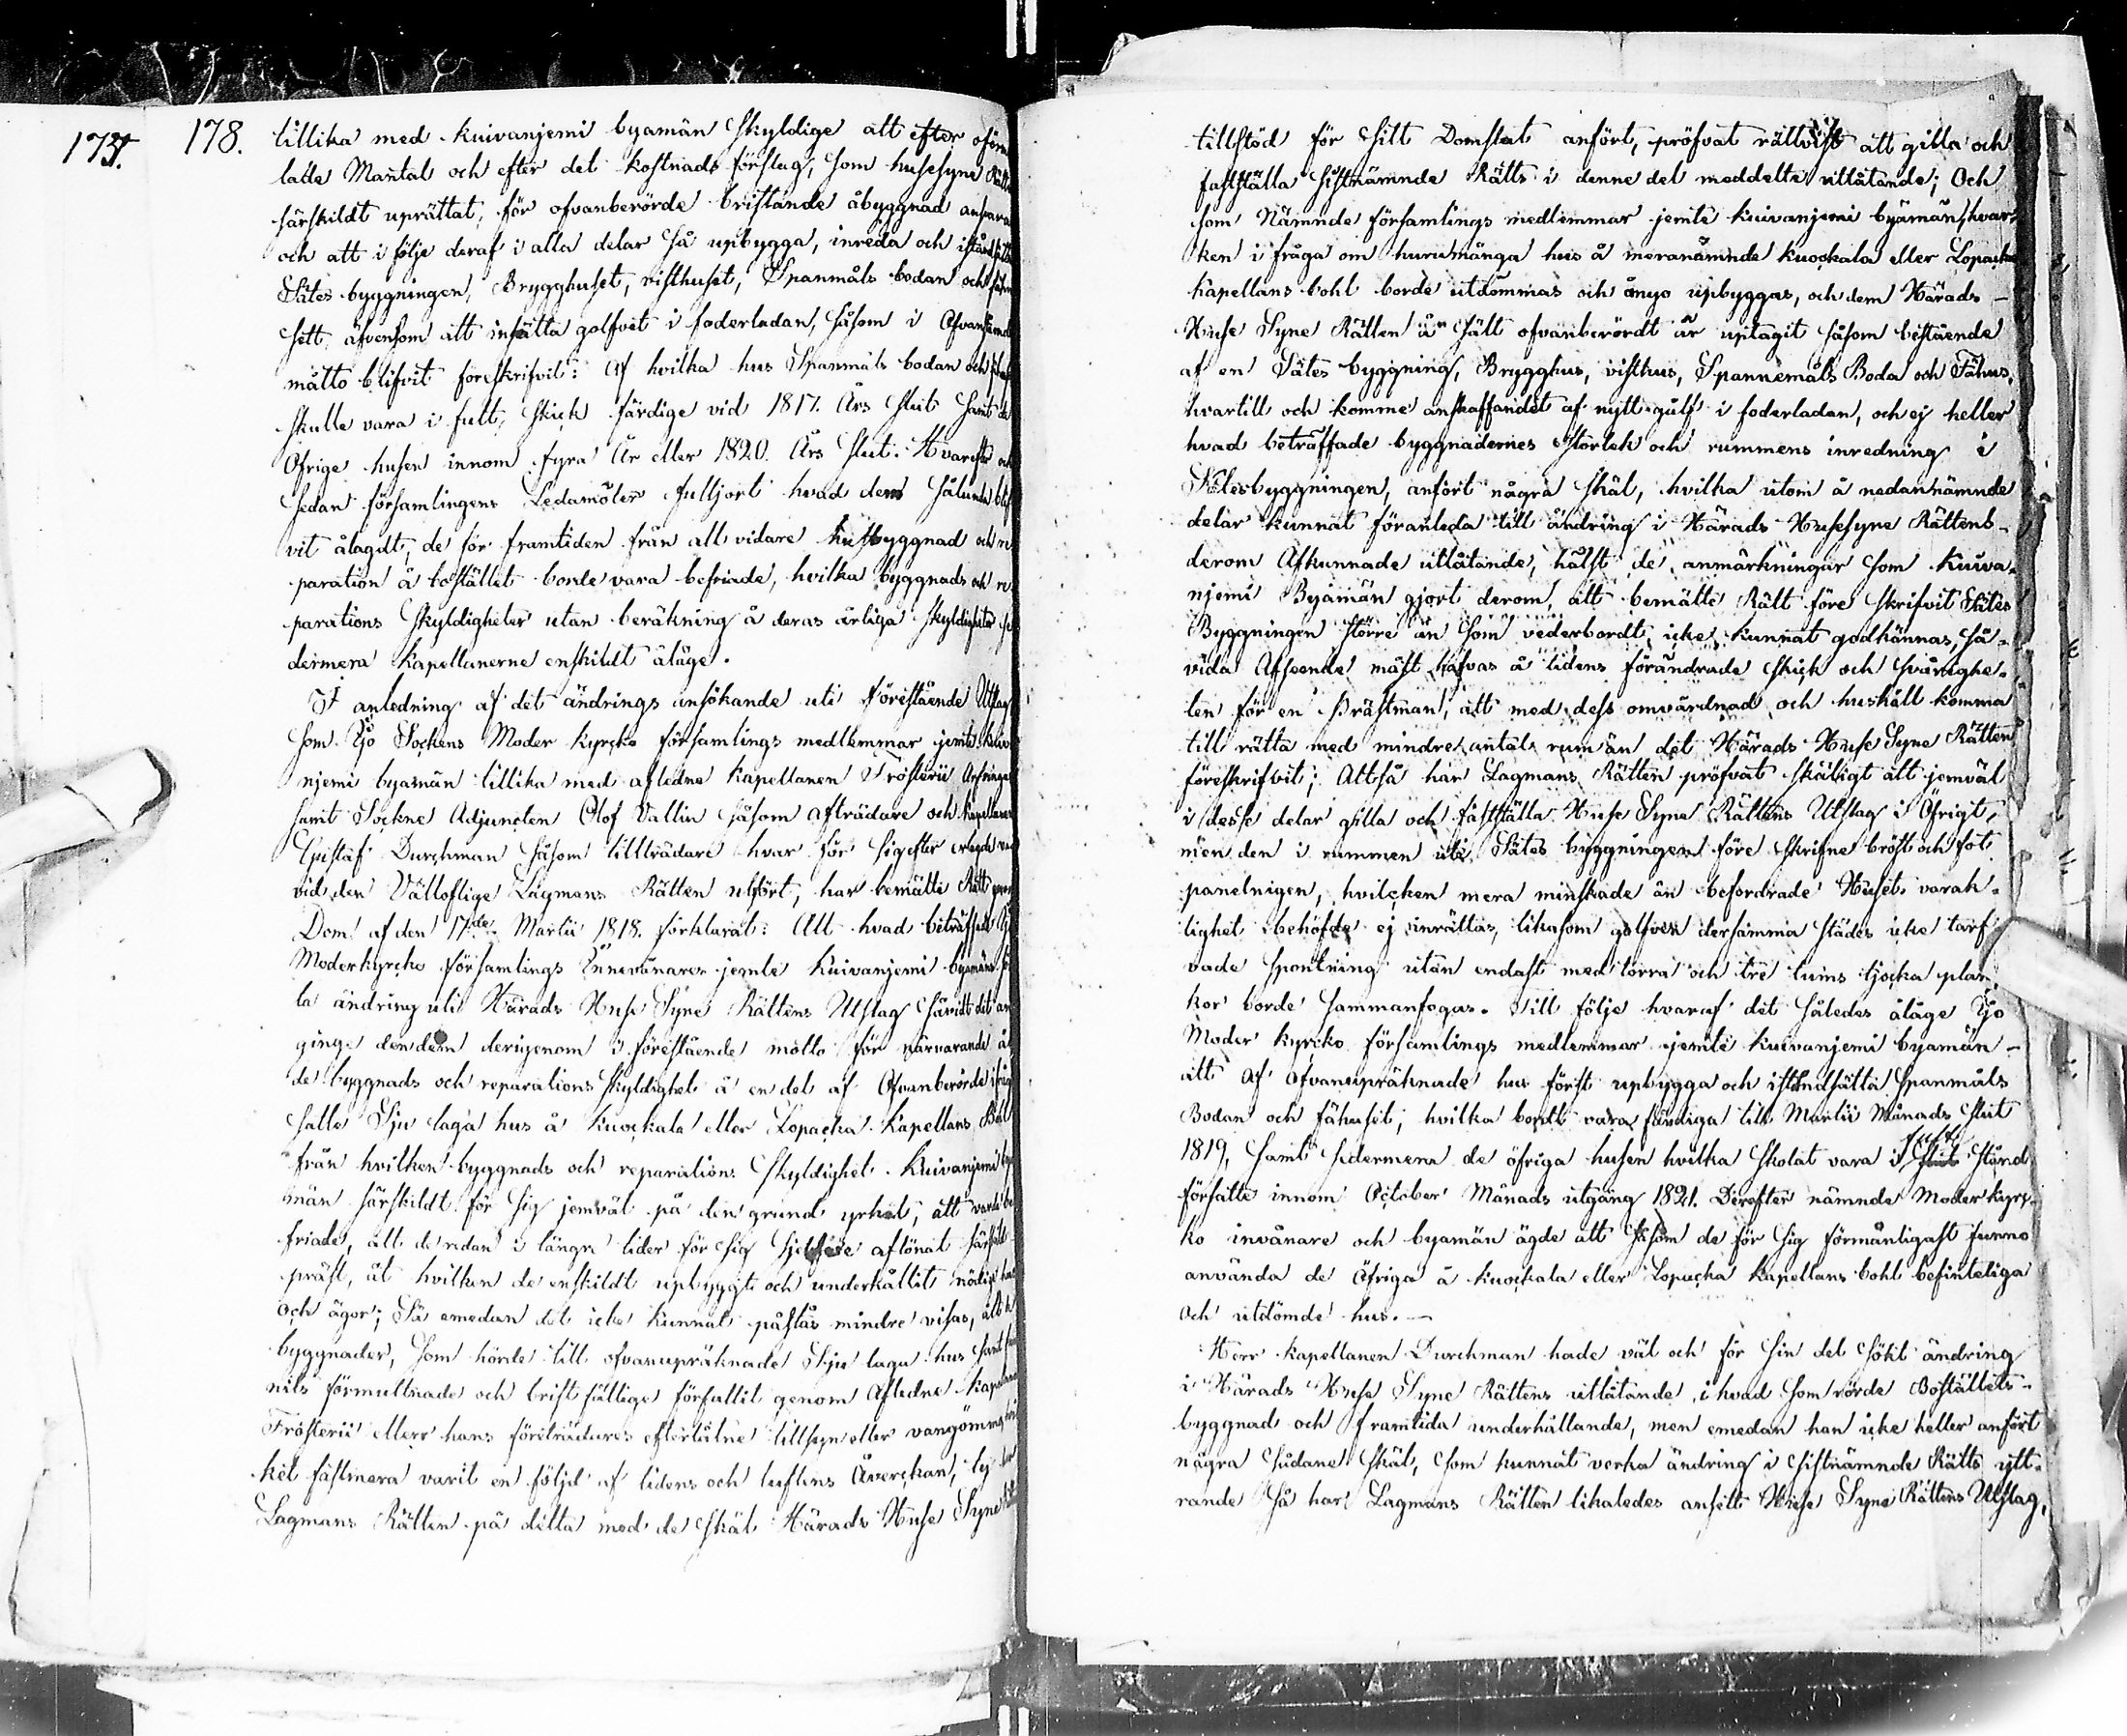 173.
178.
tillika med Kuivanjemi byamän skyldige att efter
latte Mantal och efter det kostnads förslag, som husesyne Rätten
särskildt uprättat, för ofvanberörde bristande åbyggnad ansvara
och att i följe deraf i alla delar så upbygga, inreda och iståndsätta
Sätes byggningen, Brygghuset, visthuset, Spanmåls bodan och
sett äfvensom att insätta golfvet i foderladan, såsom i
måtto blifvit föreskrifvit: Af hvilka hus Spanmåls bodan och
skulle vara i fult skick färdige vid 1817. Års slut samt de
Öfrige husen innom fyra År eller 1820. Års slut. Hvarefter och
sedan församlingens Ledamöter fulljort hvad dem sålunda blif
vit ålagdt, de för framtiden från all vidare husbyggnad och re
paration å bostället borde vara befriade, hvilka byggnads och re
parations skyldigheter utan beräkning å deras årliga skyldigheter
dermera Kapellanerne enskildt ålåge.
I anledning af det ändrings ansökande uti förestående Utslag
som Ijo Sockens Moder kyrcko församlings medlemmar jemte Kuiva
njemi byamän tillika med afledne Kapellanen Frosterii Arfvingar
samt Sockne Adjuncten Olof Vallin såsom afträdare och Kapellanen
Gustaf Durchman såsom tillträdare hvar för sig efter erlagdt vad
vid den Vällofliga Lagmans Rätten utfört, har bemälte Rätt genom
Dom af den 17de Martii 1818. förklarat: Att hvad beträffade Ijo
Moderkyrcko församlings Innevånares jemte Kuivanjemi byamäns
la ändring uti Härads Huse Syne Rättens Utslag såvidt det an
ginge den dem derigenom i förestående måtto för närvarande
de byggnads och reparations skyldighet å en del af Ofvanberörde
satte Sju laga hus å Kuockala eller Lopacka Kapellans Bohl
från hvilken byggnads och reparations skyldighet Kuivanjemi bya
män särskildt för sig jemväl på den grund yrkat, att varda be
friade, att de redan i längre tider för sig sjelfve aflönat särskild
präst, åt hvilken de enskildt upbyggt och underhållit nödige hus
och ägor; Så emedan det icke kunnat påstås mindre visas, att
byggnader, som hörde till ofvanupräknade Sju laga hus samt
nits förmultnade och bristfällige förfallit genom Afledne Kapellanen
Frosterii ellerr hans företrädares eftertålne tillsyn eller vangömning
ket fastmera varit en följd af tidens och luftens Åverckan, ty
Lagmans Rätten på detta med de skäl Härads Huse Syne Rätten
tillstöd för sitt Domslut anfört, pröfvat rättvist att gilla och
fastställa sistnämnde Rätts i denne del meddelte utlåtande; Och
som Nämnde församlings medlemmar jemte Kuivanjemi byämän, hvar
ken i fråga om huru många hus å meranämnde Kuockala eller Lopacka
Kapellans bohl borde utdömmas och ånyo upbyggas, och dem Härads
Huse Syne Rätten å sätt ofvanberördt är uptagit såsom bestående
af en Sätes byggning, Brygghus, visthus, Spannemåls Boda och Fähus,
hvartill och komme anskaffandet af nytt gulf i foderladan, och ej heller
hvad beträffade byggnadernes storlek och rummens inredning i
Sätesbyggningen, anfört några skäl, hvilka utom å nedannämnde
delar kunnat föranleda till ändring i Härads Husesyne Rättens
derom Afkunnade utlåtande, hälst de anmärkningar som Kuiva-
njemi Byämän gjort derom, att bemälte Rätt före skrifvit Sätes
Byggningen större än som vederbordt, icke kunnat godkännas, så-
vida Afseende måst hafvas å tidens förändrade skick och svårighe-
ten för en Prästman, att med dess omvårdnad och hushåll komma
till rätta med mindre antal rum än det Härads Huse Syne Rätten
föreskrifvit; Altså har Lagmans Rätten pröfvat skäligt att jemväl
i desse delar gilla och fastställa Huse Syne Rättens Utslag i Öfrigt,
men den i rummen uti Sätes byggningen före skrifne bröst och fot
panelnigen, hvilcken mera minskade än befordrade Husets varak-
tighet behöfde ej inrättas, likasom golfven dersamma städes icke tarf
vade spontning utan endast med torra och tre tums tjocka plan
kor borde sammanfogas. Till följe hvaraf det således ålåge Ijo
Moder kyrcko församlings medlemmar jemte Kuivanjemi byamän
att af ofvanupräknade hus först upbygga och iståndsätta Spanmåls
Bodan och fähuset, hvilka bordt vara färdiga till Martii Månads slut
1819, samt sedermera de öfriga husen hvilka skolat vara i fult stånd
försatte innom October Månads utgång 1821. Derefter nämnde Moder kyrc-
ko invånare och byamän ägde att såsom de för sig förmånligast funno
använda de öfriga å Kuockala eller Lopacka Kapellans bohl befinteliga
och utdömde hus.
Herr Kapellanen Durchman hade väl och för sin del sökt ändring
i Härads Huse Syne Rättens utlåtande, i hvad som rörde Boställets
byggnad och framtida underhållande, men emedan han icke heller anfört
några sådane skäl, som kunnat verka ändring i sistnämnde Rätts ytt-
rande så har Lagmans Rätten likaledes ansett Huse Syne Rättens Utslag,